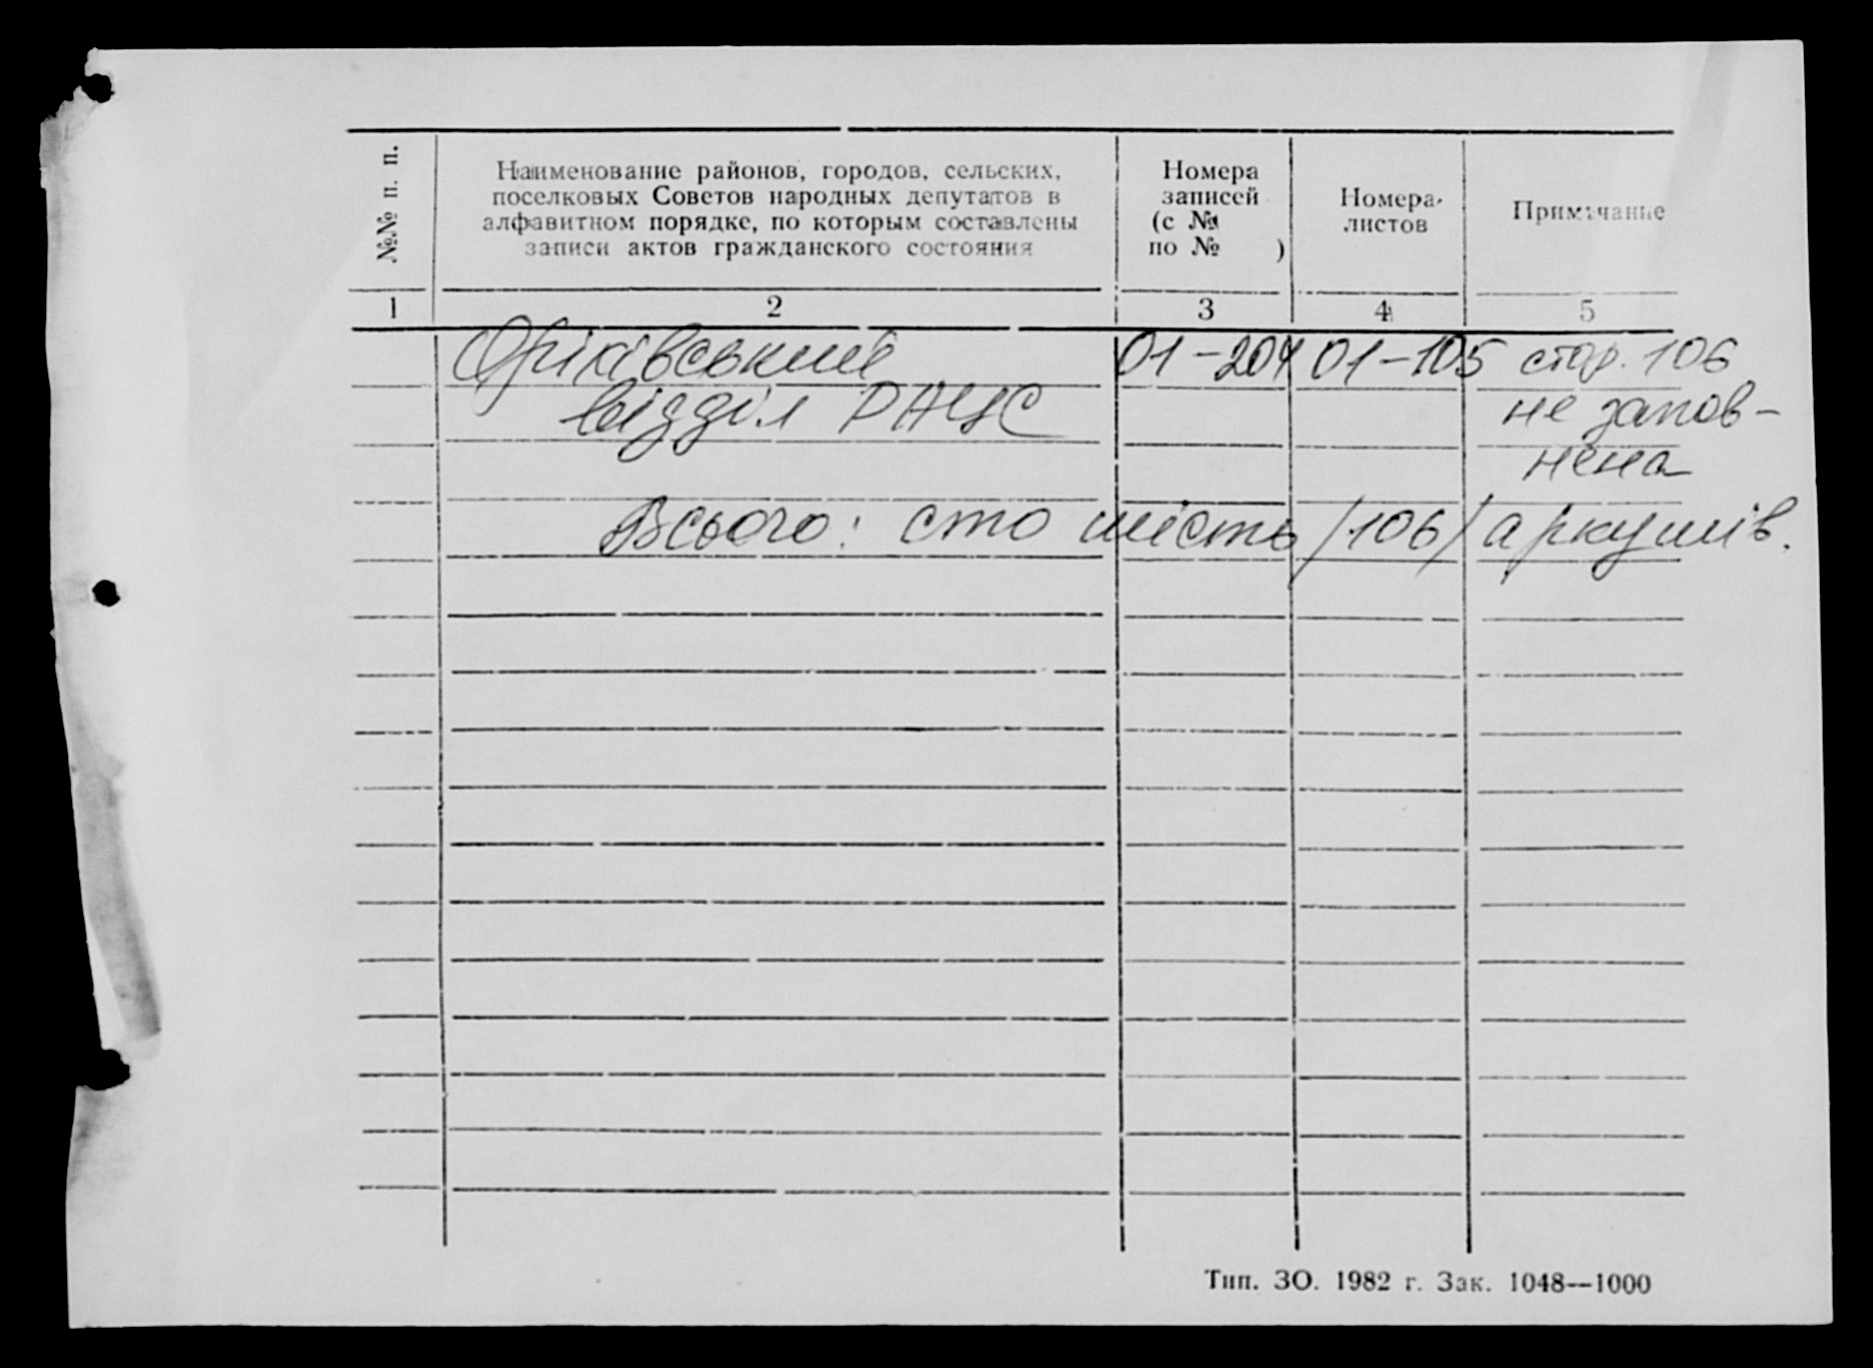 №№ п. п.
Наименование районов, городов, сельских,
поселковых Советов народных депутатов в
алфавитном порядке, по которым составлены
записи актов гражданского состояния
Номера
записей
(с №
по № )
Номера
листов
Примечание
1 2 3 4 5
Оріхівський 01-204 01-105 стор. 106
відділ РАЦС не запов-
нена
Всього: сто шість /106/ аркушів.
Тип. ЗО. 1982 г. Зак. 1048—1000